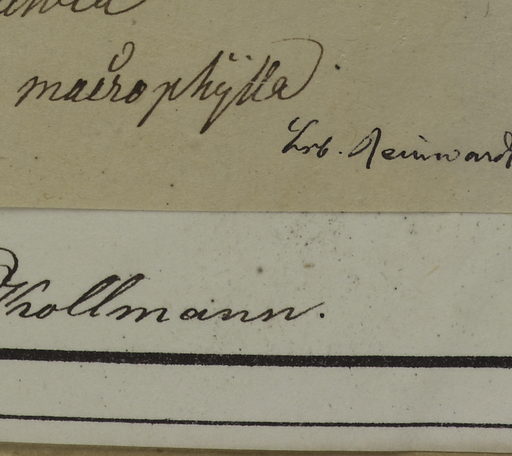 macrophÿlla.
hrb. Reinwardt
Kollmann.